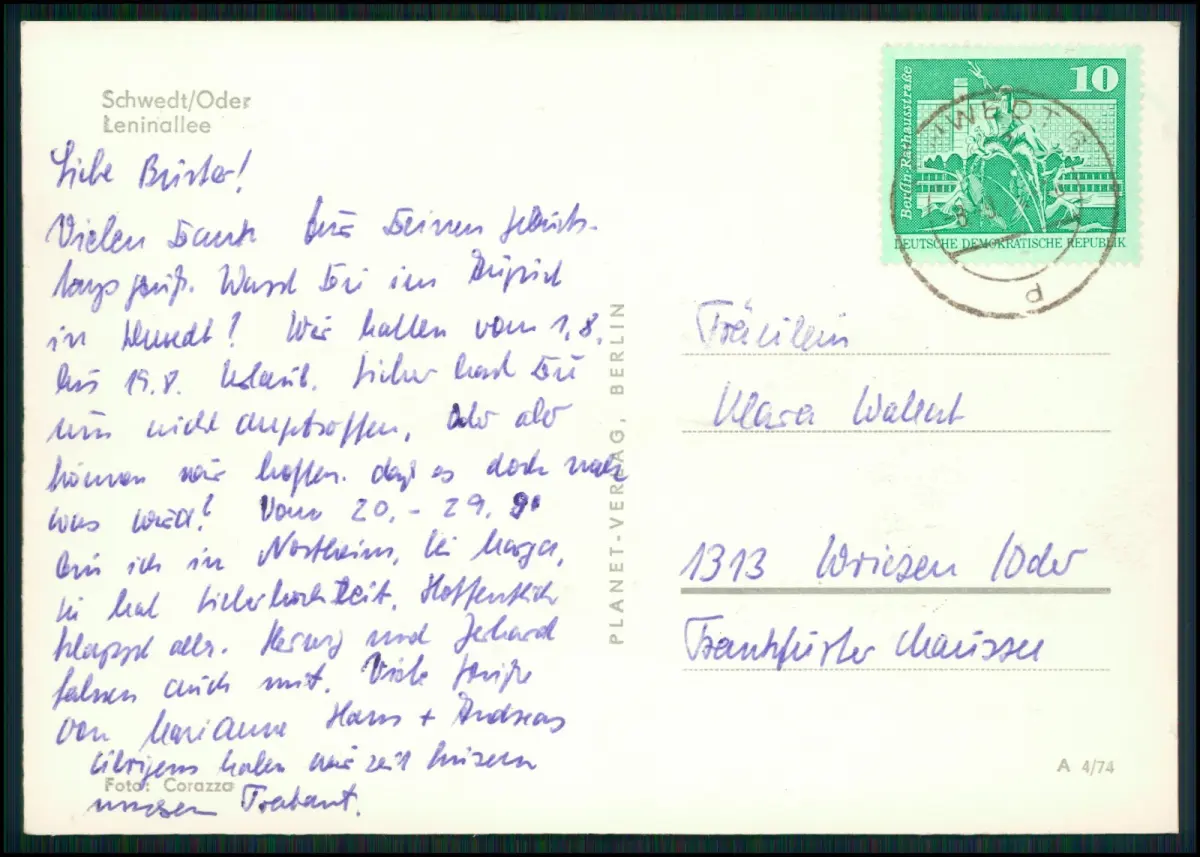 Schwedt/Oder
Leninallee
Liebe Bürster!
Vielen Dank für Deinen Geburts-
tagsgruß. Warst Du im August
in Schwedt? Wir hatten vom 1.8.
bis 19.8. Urlaub. Sicher hast Du
uns nicht angetroffen, oder aber
können wir hoffen, daß es doch noch
was wird? Vom 20. - 29. 9.
bin ich in Northeim, bei Marga,
sie hat Silberhochzeit. Hoffentlich
klappt alles. Herwig und Gerhard
fahren auch mit. Viele Grüße
von Marianne Hans + Andreas
Übrigens haben wir seit kurzem
unseren Trabant.
Foto: Corazza
PLANET-VERLAG, BERLIN
10
Berlin·Rathausstraße
DEUTSCHE DEMOKRATISCHE REPUBLIK
Fräulein
Klara Wallent
1313 Wriezen /Oder
Frankfurter Chaussee
A 4/74